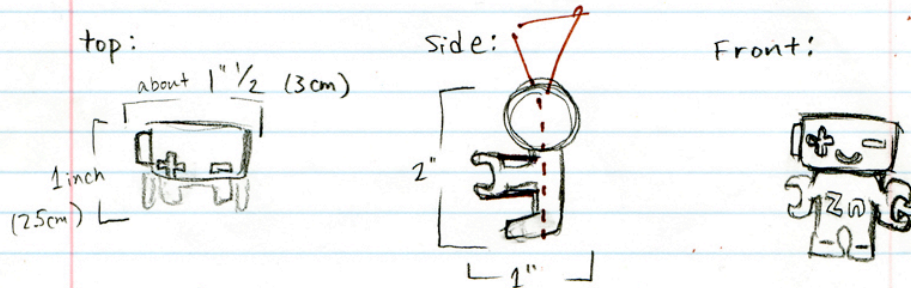 top:
about 1" 1/2 (3cm)
1 inch
(2.5cm)
Side:
2"
1"
Front:
Zn